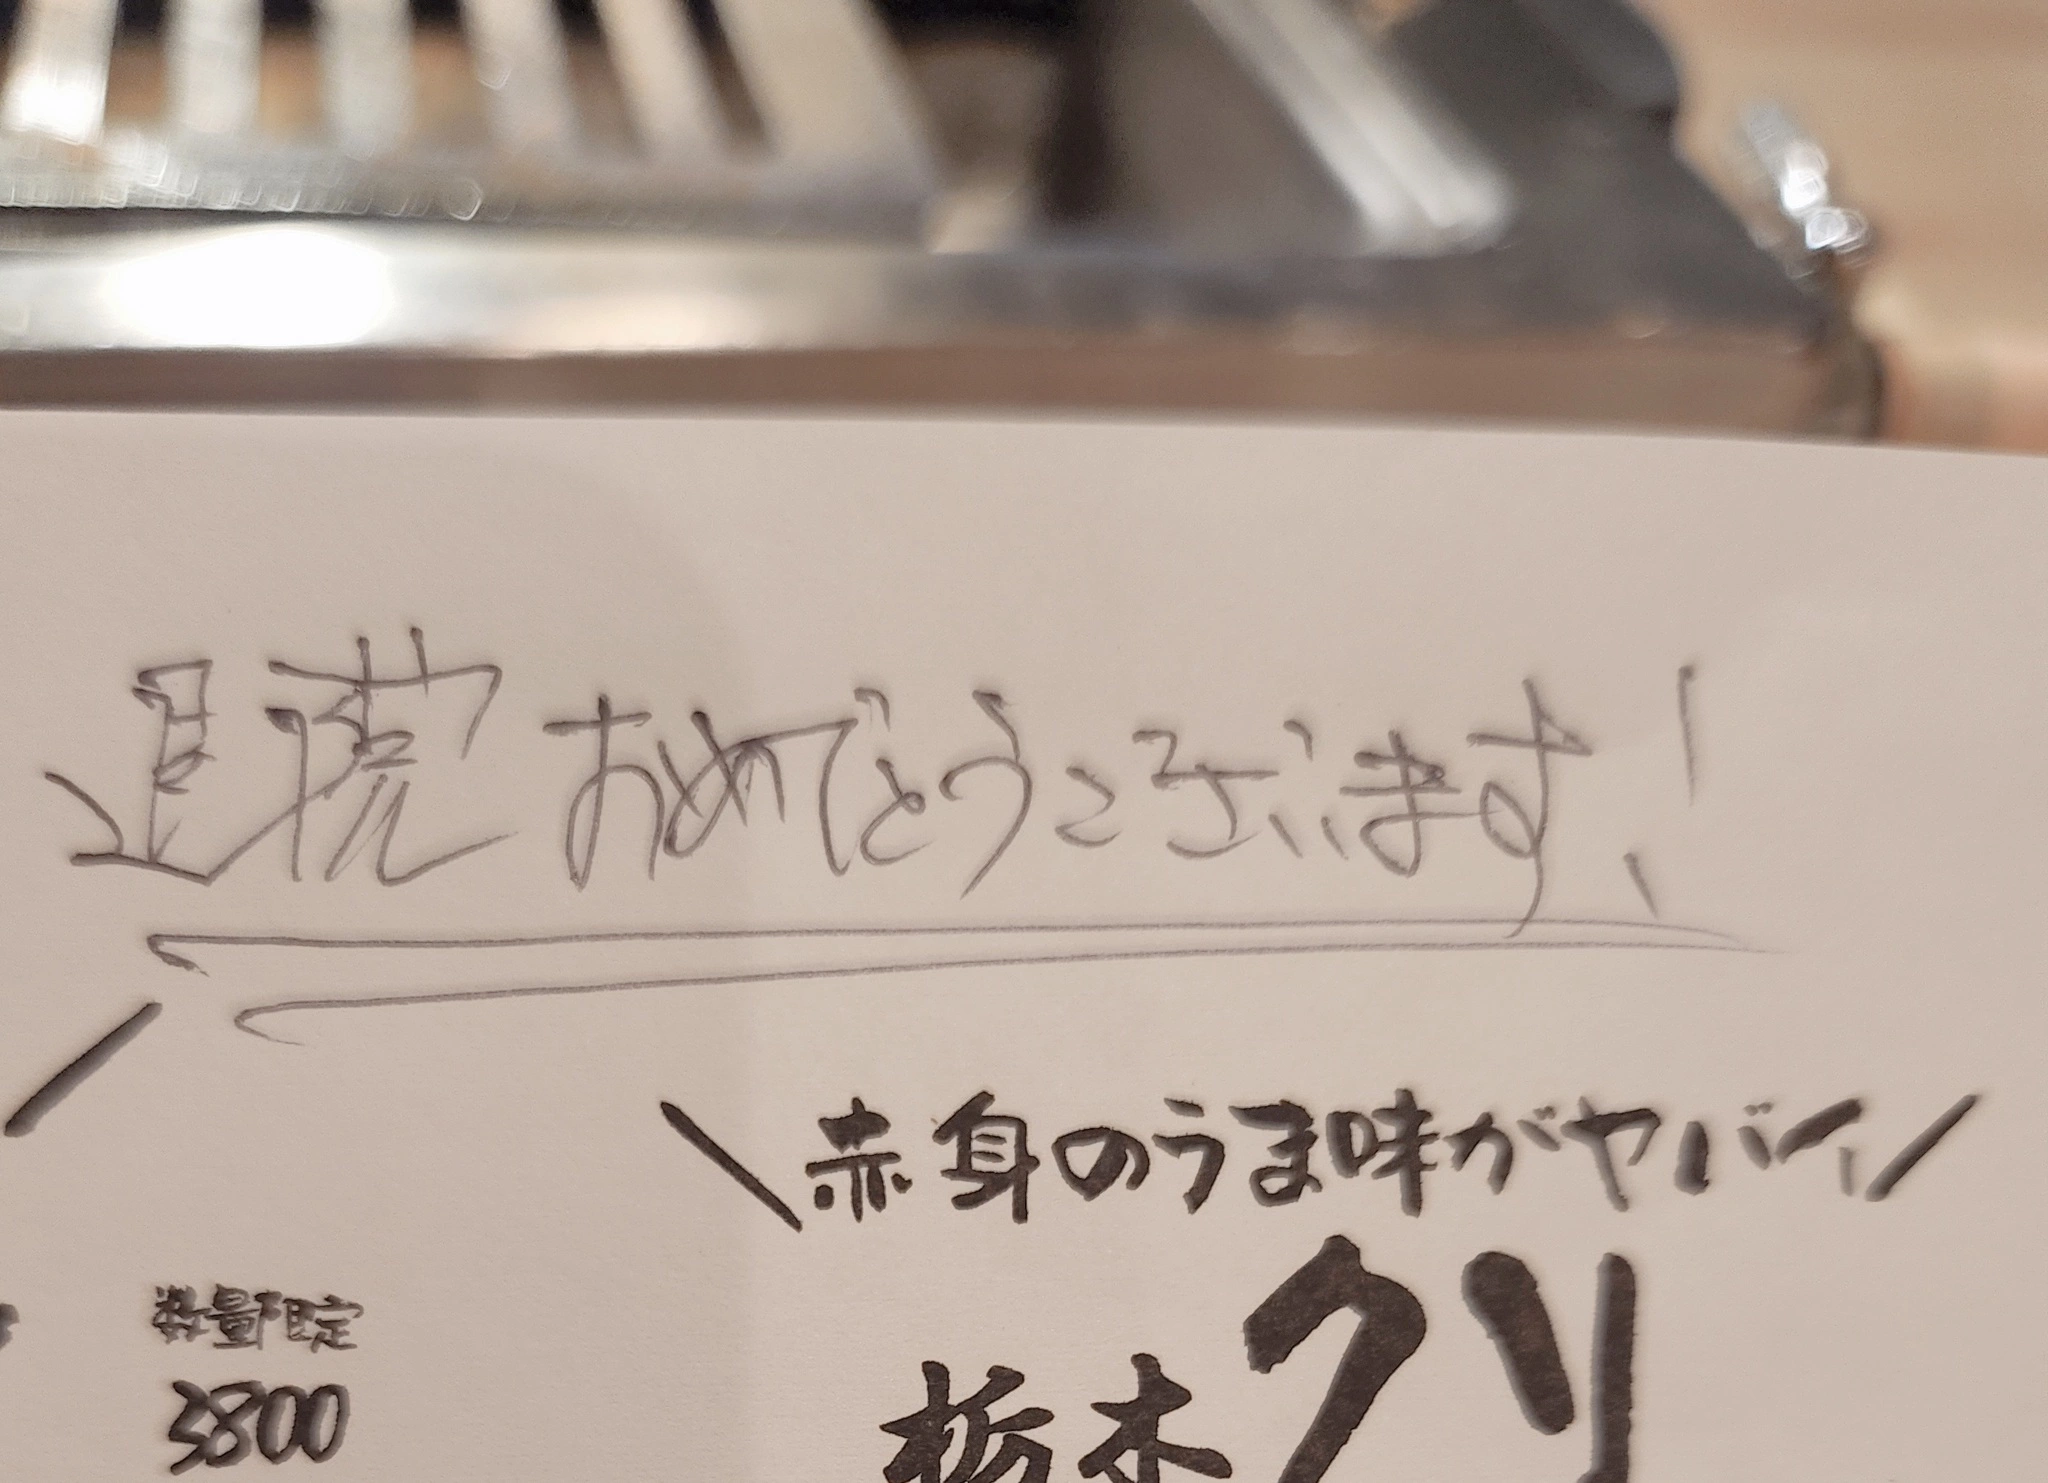 退院おめでとうございます!
赤身のうま味がヤバイ
数量限定
3800
栃木クリ